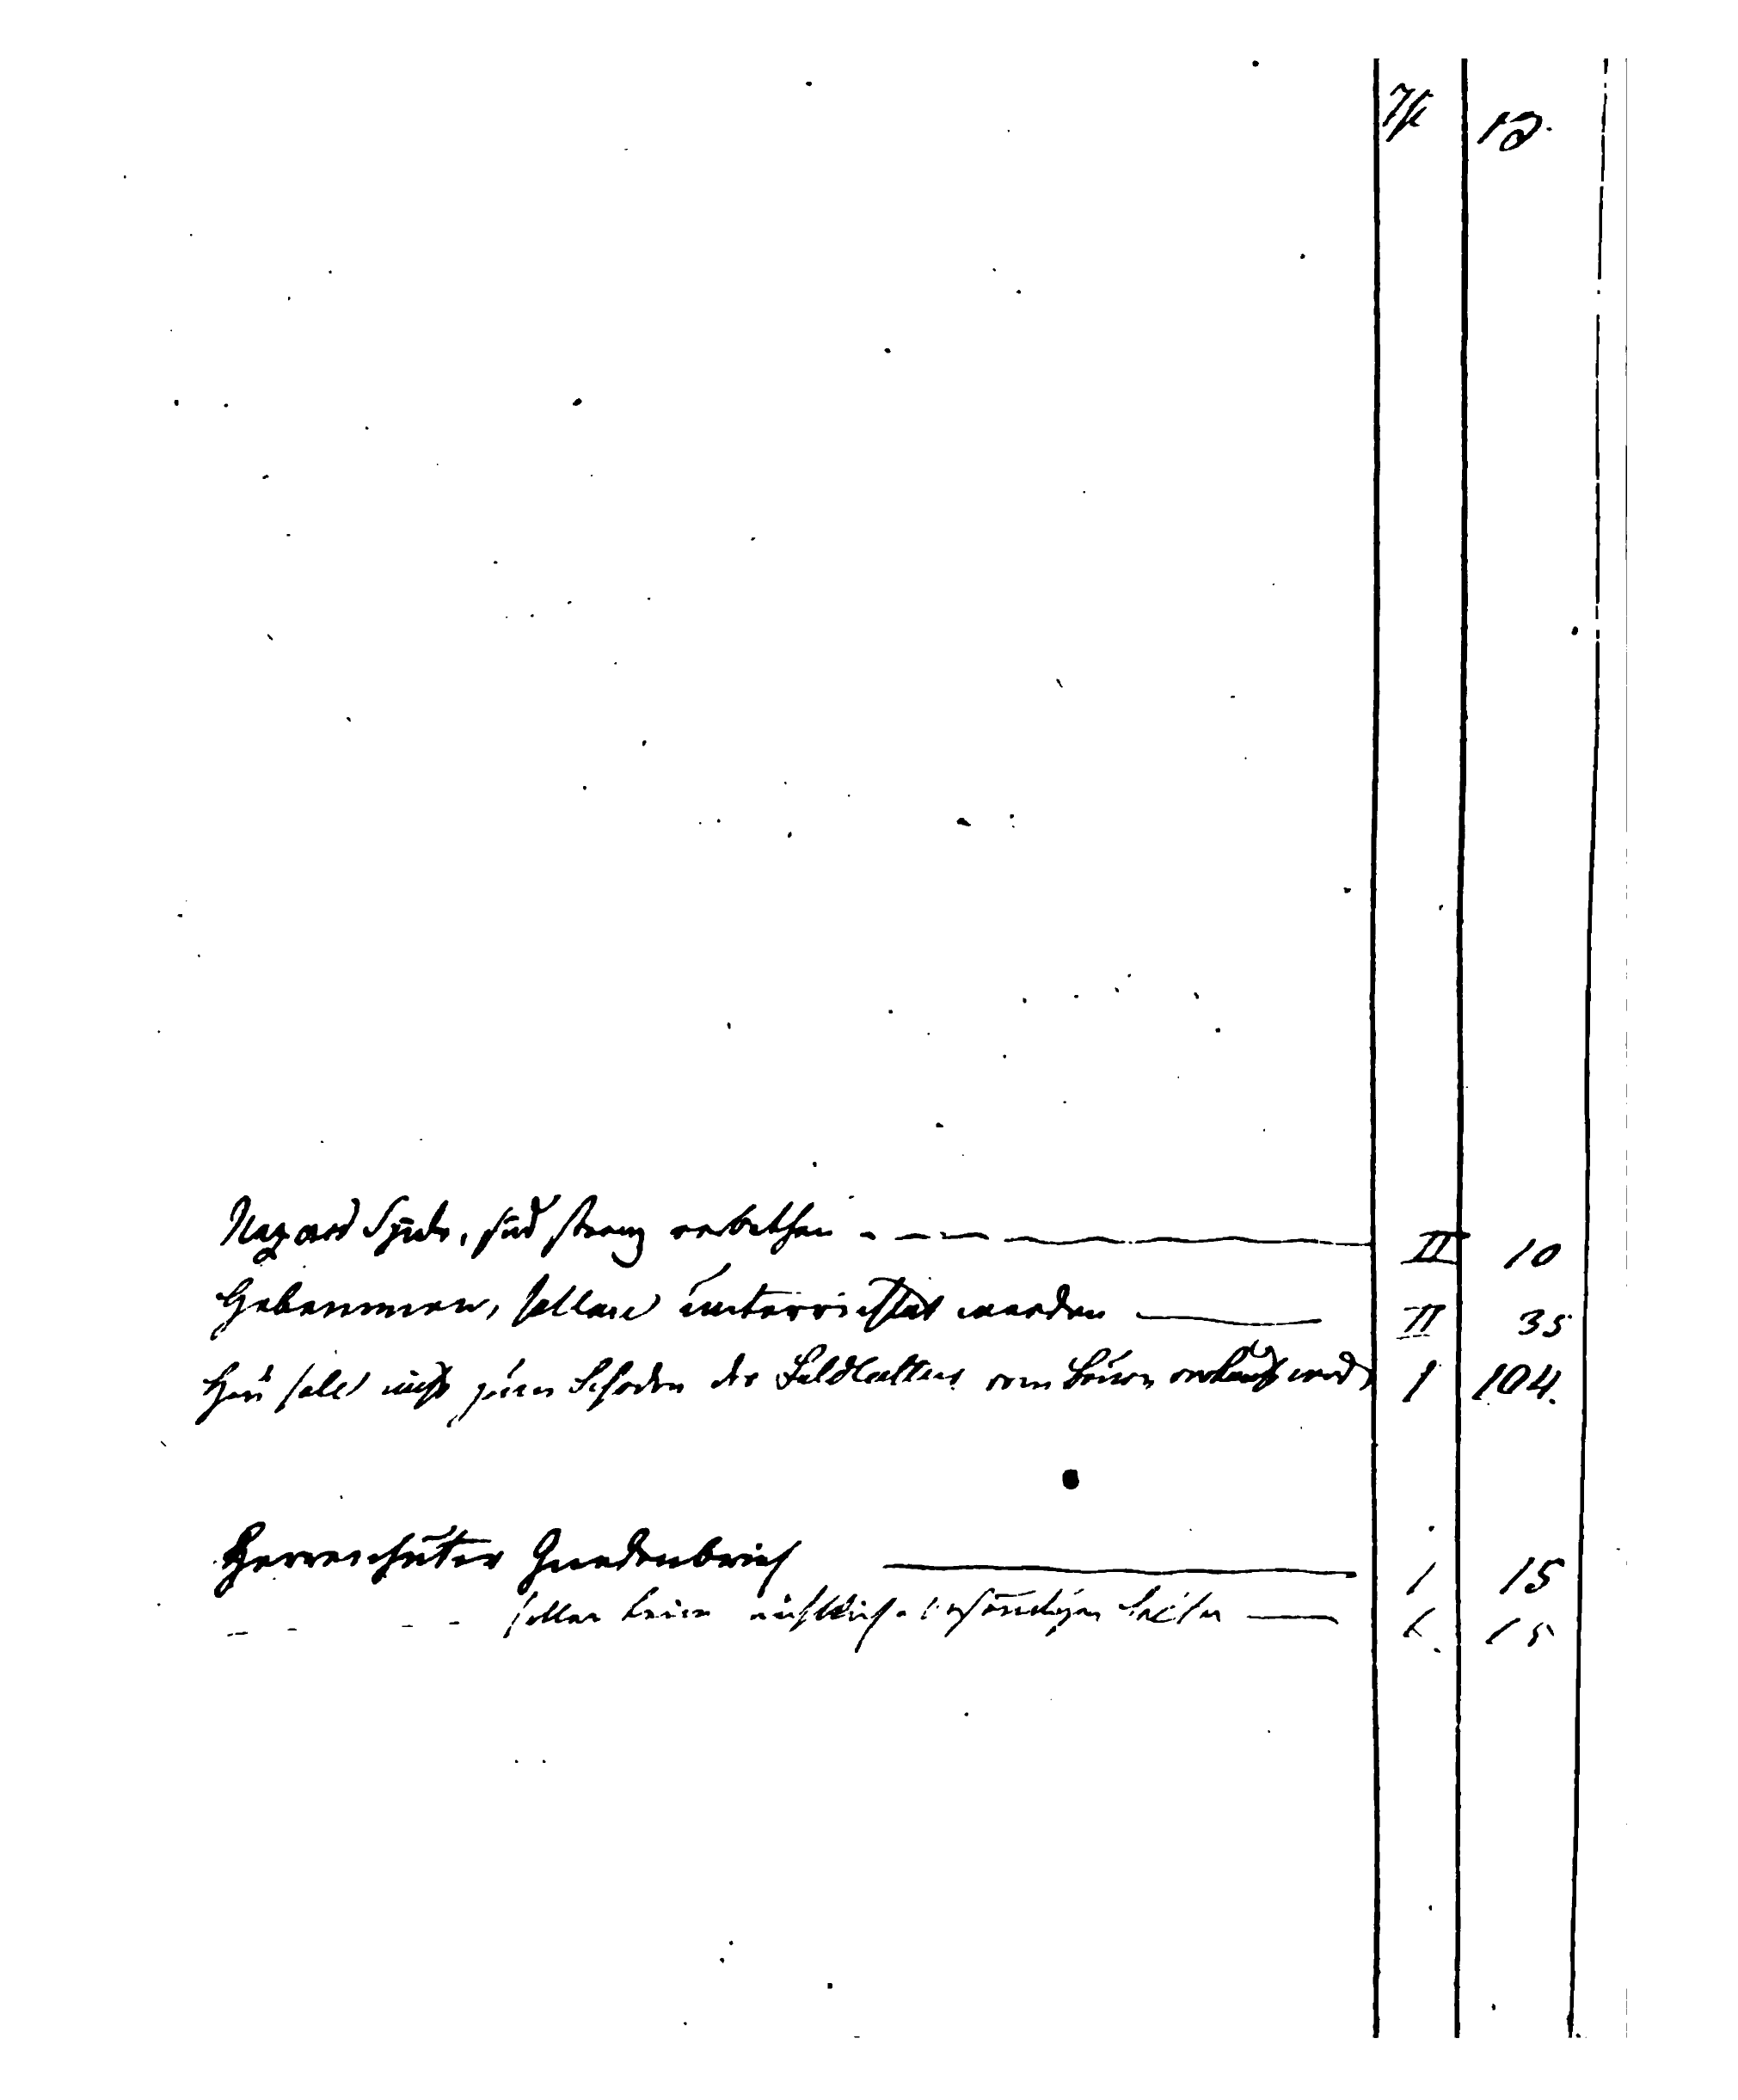 Th 
Hazard Spiele, sind streng verbothen - - - II 10
Hebammen, sollen unterrichtet werden — II 35
Heu soll nicht zum Schaden der Feldcultur vom Bauern verkauft werden I 104.
Herrenhuter Gnadenbrief — I 15
- - - - sollen keine 15